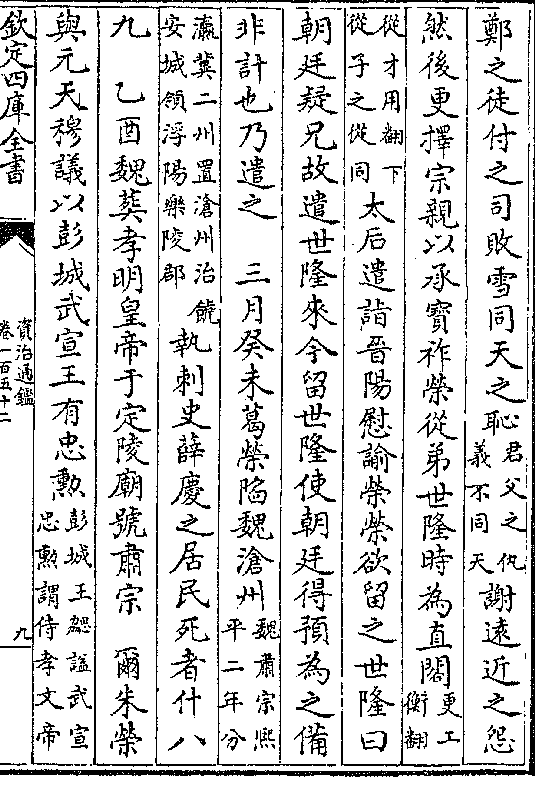 鄭之徒付之司敗雪同天之恥君父之仇義不同天謝遠近之怨
然後更擇宗親以承寶祚榮從弟世隆時為直閤更工衡翻
從才用翻下從子之從同太后遣詣晉陽慰諭榮榮欲留之世隆曰
朝廷疑兄故遣世隆來今留世隆使朝廷得預為之備
非計也乃遣之　三月癸未葛榮陷魏滄州魏肅宗熙平二年分
瀛冀二州置滄州治饒安城領浮陽樂陵郡執刺史薛慶之居民死者什八
九　乙酉魏葬孝明皇帝于定陵廟號肅宗　爾朱榮
與元天穆議以彭城武宣王有忠勲彭城王勰諡武宣忠勲謂侍孝文帝
欽定四庫全書
資治通鑑
卷一百五十二
九